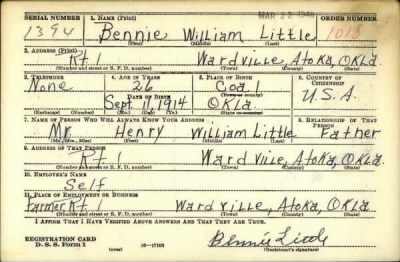 MAR 22 1946
SERIAL NUMBER 1. NAME (Print) ORDER NUMBER
1394 Bennie William Little 1018
(First) (Middle) (Last)
2. ADDRESS (Print)
Rt 1 Wardville, Atoka, Okla.
(Number and street or R. F. D. number) (Town) (County) (State)
3. TELEPHONE 4. AGE IN YEARS 5. PLACE OF BIRTH 6. COUNTRY OF CITIZENSHIP
None 26 Coal U.S.A.
DATE OF BIRTH (Town or county)
Sept. 11, 1914 Okla.
(Exchange) (Number) (Mo.) (Day) (Yr.) (State or country)
7. NAME OF PERSON WHO WILL ALWAYS KNOW YOUR ADDRESS 8. RELATIONSHIP OF THAT PERSON
Mr. Henry William Little Father
(Mr., Mrs., Miss) (First) (Middle) (Last)
9. ADDRESS OF THAT PERSON
Rt 1 Wardville, Atoka, Okla
(Number and street or R. F. D. number) (Town) (County) (State)
10. EMPLOYER'S NAME
Self
11. PLACE OF EMPLOYMENT OR BUSINESS
Farmer Rt 1 Wardville, Atoka, Okla.
(Number and street or R. F. D. number) (Town) (County) (State)
I AFFIRM THAT I HAVE VERIFIED ABOVE ANSWERS AND THAT THEY ARE TRUE.
REGISTRATION CARD
D. S. S. Form 1 (over) 16—17105 Bennie Little
(Registrant's signature)